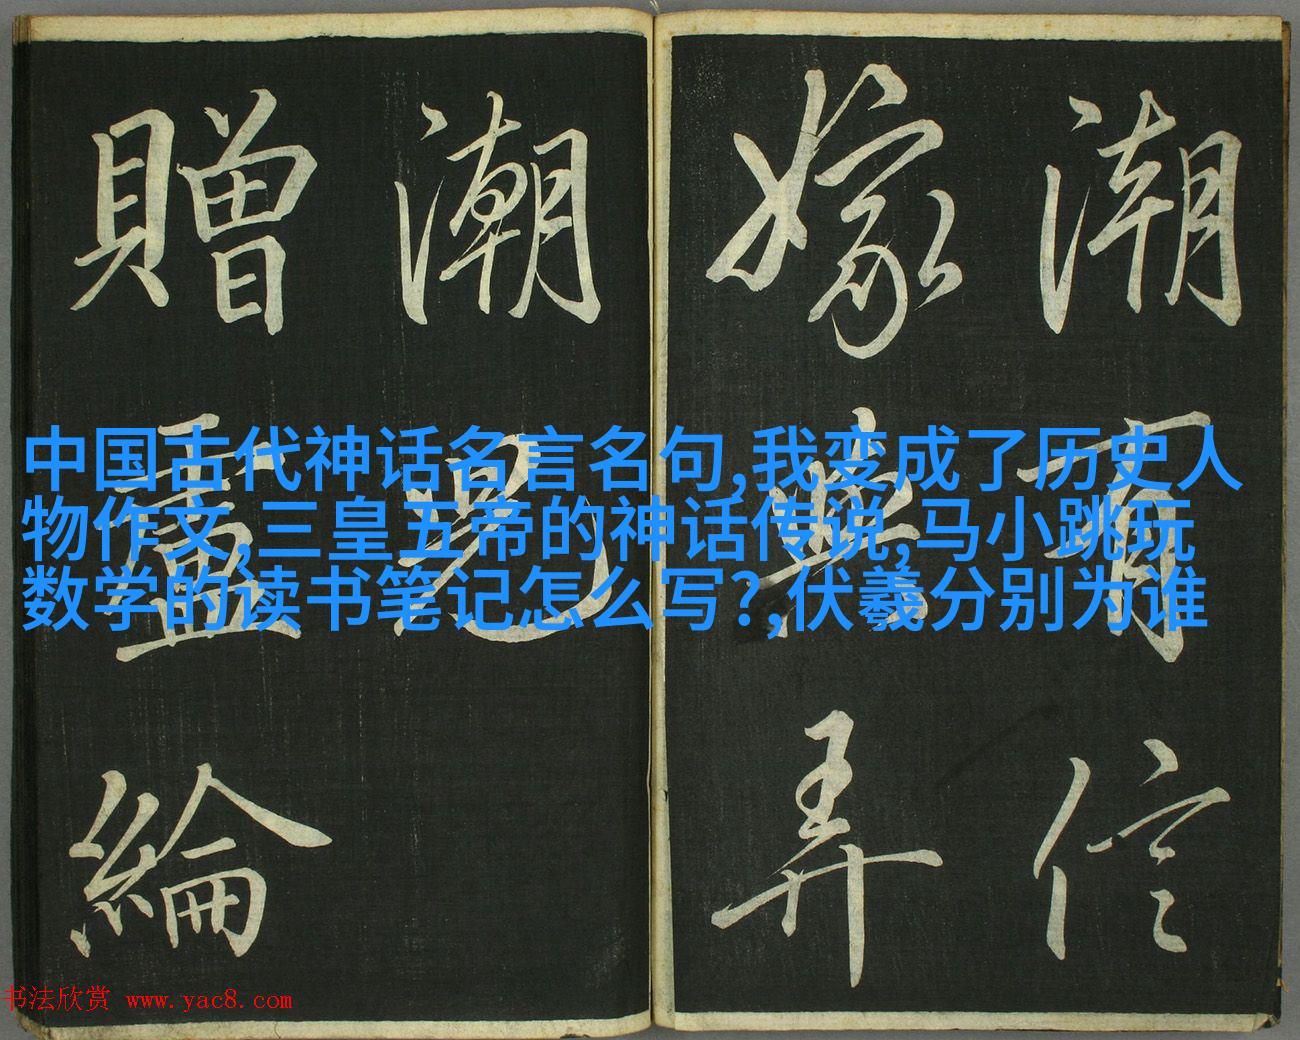 潮有信
嫁與弄
潮兒
贈盧綸
中国古代神话名言名句,我变成了历史人
物作文,三皇五帝的神话传说,马小跳玩
数学的读书笔记怎么写?,伏羲分别为谁
书法欣赏 www.yac8.com